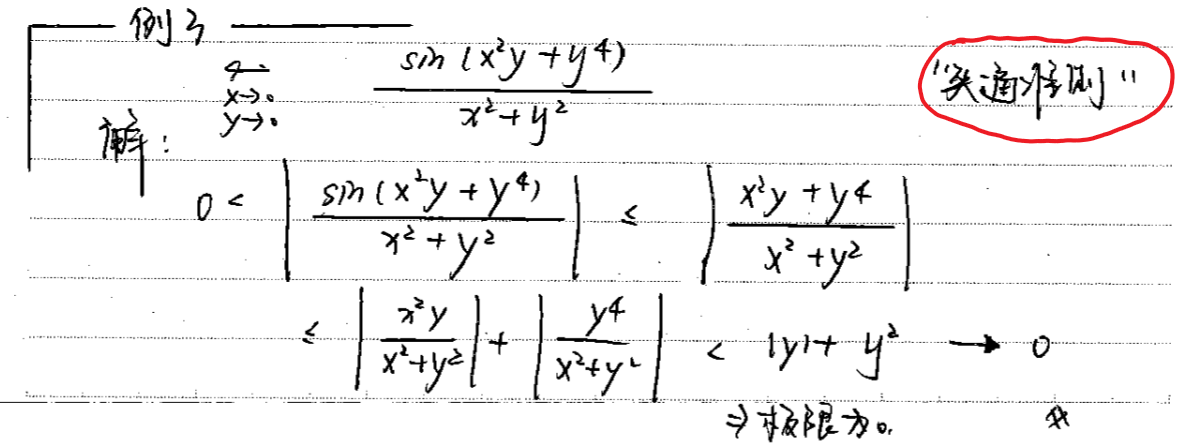 例3
lim x→0 y→0 sin(x²y+y⁴) / x²+y² "夹逼准则"
解:
0 < | sin(x²y+y⁴) / x²+y² | ≤ | x²y+y⁴ / x²+y² |
≤ | x²y / x²+y² | + | y⁴ / x²+y² | < |y|+y² → 0
⇒极限为0. #